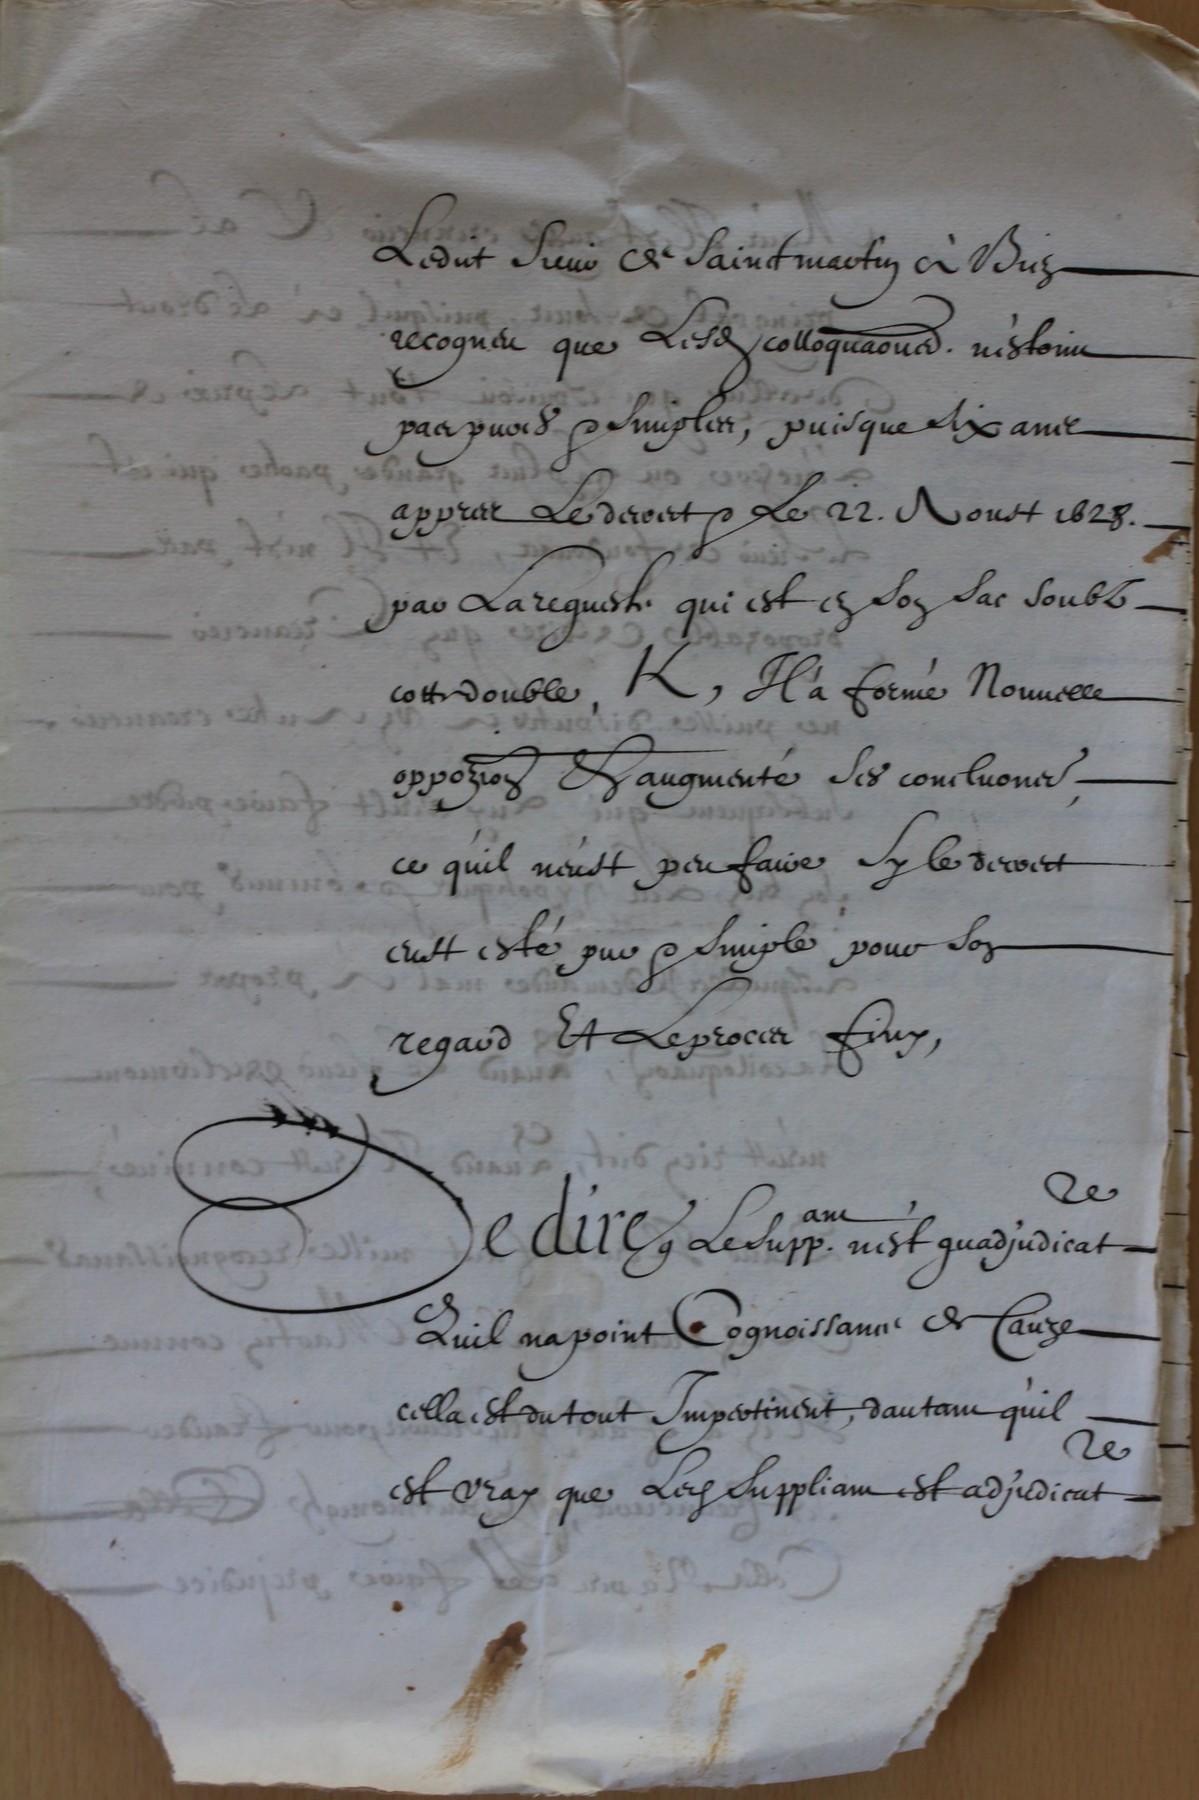 Ledit Sieur de Saint martin à Bien
recogneu que Lesd colloquaôned. n'estoint
pas pures & simples, puisque dix ans
appres Le decret & Le 22. Aoust 1628.
par La requeste qui est en son sac soubz
cotte double, K, Il'a formé Nouuelle
oppozion Et augmenté ses concluôns,
ce qu'il n'eust peu faire sy le decret
eust esté pur & simple pour son
regard Et Le procez finy,
De dire q Le Supp.ant n'est qu'adjudicatre
Quil na point Cognoissance de Cauze
cella est du tout Impertinent, dautant qu'il
est vray que Led Suppliant est adjudicatre